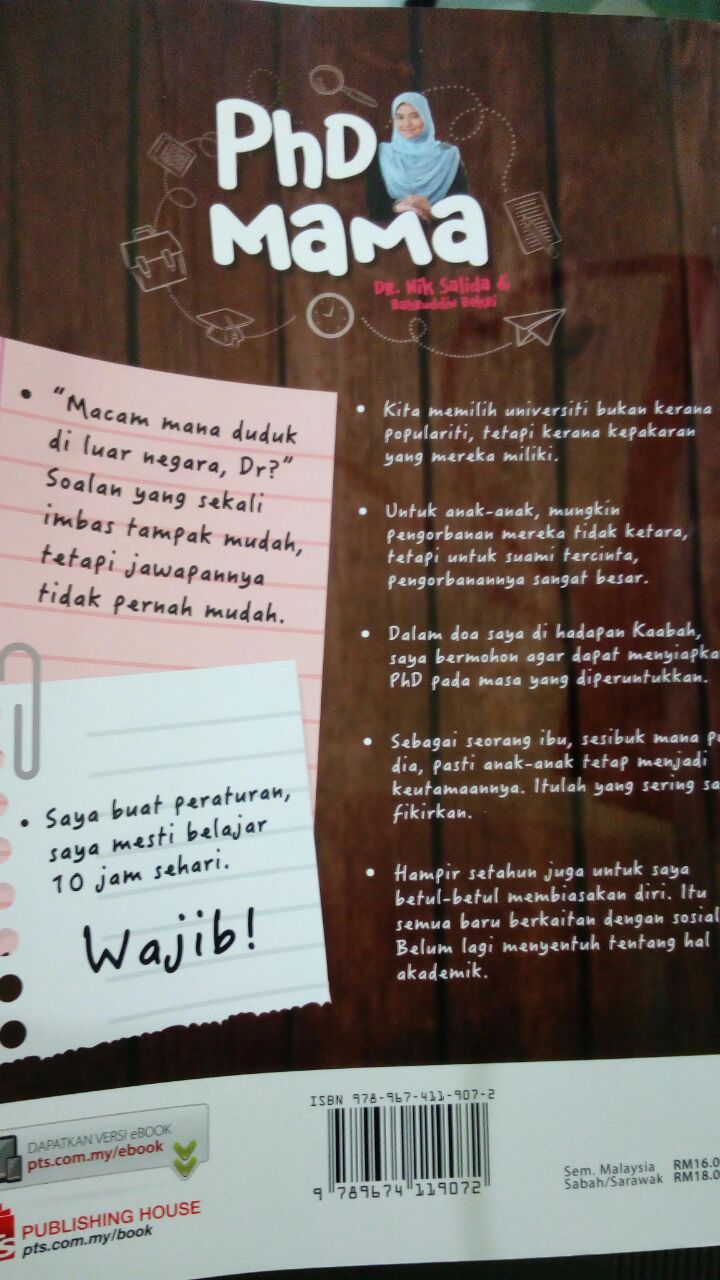 PhD
MAMA
Dr. Nik Salida &
Bahruddin Bekri
• "Macam mana duduk
di luar negara, Dr?"
Soalan yang sekali
imbas tampak mudah,
tetapi jawapannya
tidak pernah mudah.
• Saya buat peraturan,
saya mesti belajar
10 jam sehari.
Wajib!
• Kita memilih universiti bukan kerana
populariti, tetapi kerana kepakaran
yang mereka miliki.
• Untuk anak-anak, mungkin
pengorbanan mereka tidak ketara,
tetapi untuk suami tercinta,
pengorbanannya sangat besar.
• Dalam doa saya di hadapan Kaabah,
saya bermohon agar dapat menyiapka
PhD pada masa yang diperuntukkan.
• Sebagai seorang ibu, sesibuk mana p
dia, pasti anak-anak tetap menjadi
keutamaannya. Itulah yang sering sa
fikirkan.
• Hampir setahun juga untuk saya
betul-betul membiasakan diri. Itu
semua baru berkaitan dengan sosial
Belum lagi menyentuh tentang hal
akademik.
DAPATKAN VERSI eBOOK
pts.com.my/ebook
S PUBLISHING HOUSE
pts.com.my/book
ISBN 978-967-411-907-2
9 789674 119072
Sem. Malaysia RM16.0
Sabah/Sarawak RM18.0